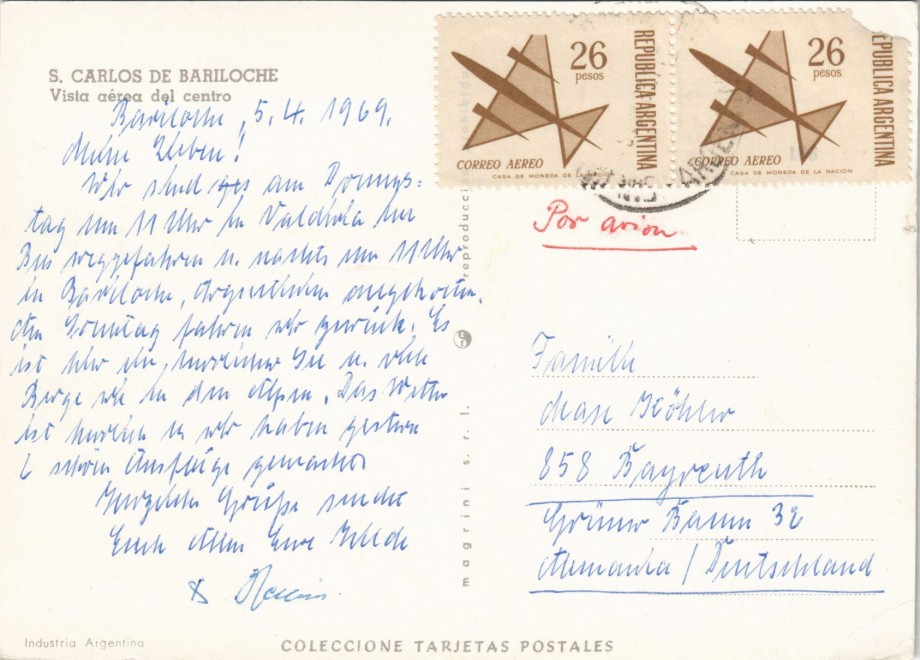 S. CARLOS DE BARILOCHE
Vista aérea del centro
Bariloche, 5.4. 1969.
Meine Lieben!
Wir sind am Donners=
tag um 11 Uhr in Valdivia im
Bus weggefahren u. nachts um 11 Uhr
in Bariloche, Argentinien angekommen.
Am Sonntag fahren wir zurück. Es
ist hier ein herrlicher See u. viele
Berge wie in den Alpen. Das Wetter
ist herrlich u. wir haben gestern
2 schöne Ausflüge gemacht.
Herzliche Grüße sendet
Euch Allen Eure Hilde
&
Industria Argentina
COLECCIONE TARJETAS POSTALES
magrini s. r. l.
reproducci
26
pesos
REPUBLICA ARGENTINA
CORREO AEREO
CASA DE MONEDA DE
26
pesos
EPUBLICA ARGENTINA
CORREO AEREO
CASA DE MONEDA DE LA NACION
Por avion
Familie
Max Köhler
858 Bayreuth
Grüner Baum 32
Alemania / Deutschland